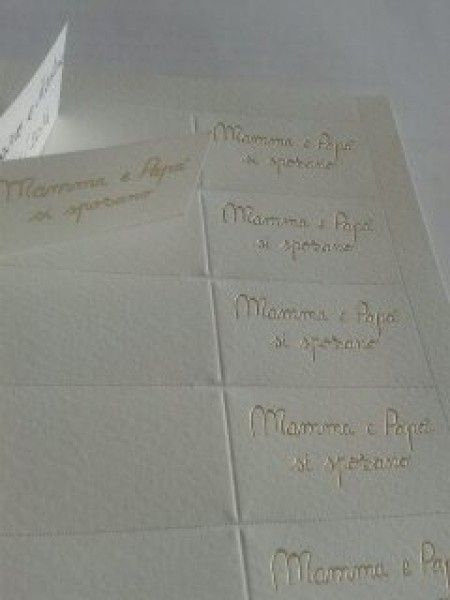 Mamma e Papà
si sposano
Mamma e Papà
si sposano
Mamma e Papà
si sposano
Mamma e Papà
si sposano
Mamma e Papà
si sposano
Mamma e Pap